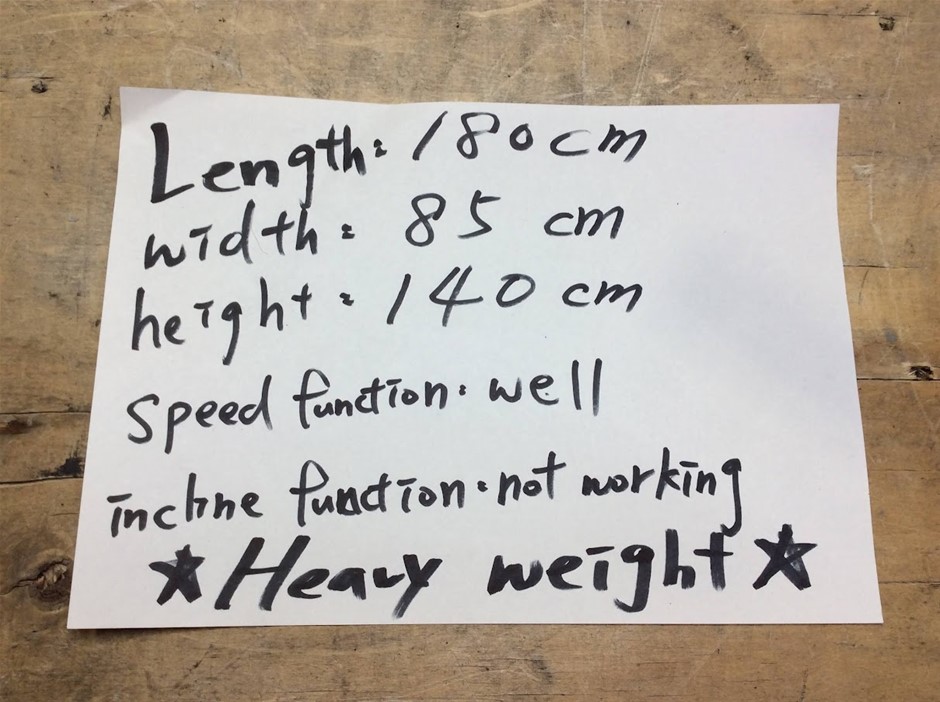 Length: 180cm
width: 85 cm
height: 140 cm
Speed function: well
incline function: not working
★Heavy weight★